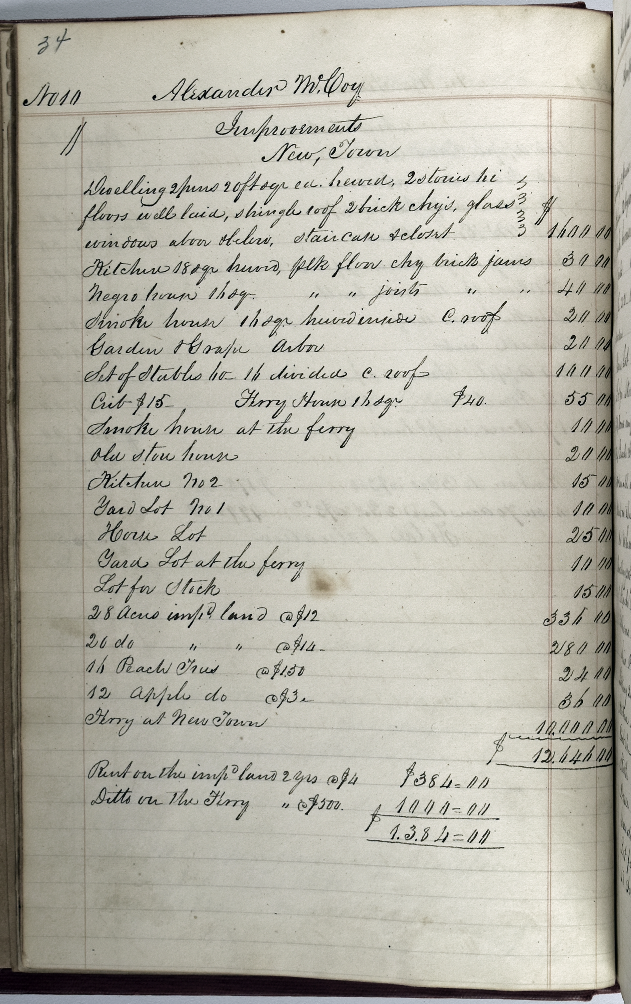 34
No 10 Alexander McCoy
11 Improvements
New, Town
Dwelling 2 pens 20ft sqr ea. hewed, 2 stories hi
floors well laid, shingle roof 2 brick chy's, glass $
windows above & below, staircase & closet 1600 00
Kitchen 18 sqr hewed, plk floor chy brick jams 30 00
Negro house 16 sq. " " joists " " 40 00
Smoke house 16 sqr hewed inside C. roof 20 00
Garden & Grape Arbor 20 00
Set of Stables 60 16 divided c. roof 100 00
Crib $15 Ferry House 16 sqr $40. 55 00
Smoke house at the ferry 10 00
Old store house 20 00
Kitchen No 2 15 00
Yard Lot No 1 10 00
Horse Lot 25 00
Yard Lot at the ferry 10 00
Lot for Stock 15 00
28 Acres impd land @$12 336 00
20 do " " @$14 280 00
16 Peach Trees @$1.50 24 00
12 Apple do @$3 36 00
Ferry at New Town 10.000 00
$ 12.646 00
Rent on the impd land 2 yrs @$4 $384=00
Ditto on the Ferry " @$500. 1000=00
$ 1.384=00